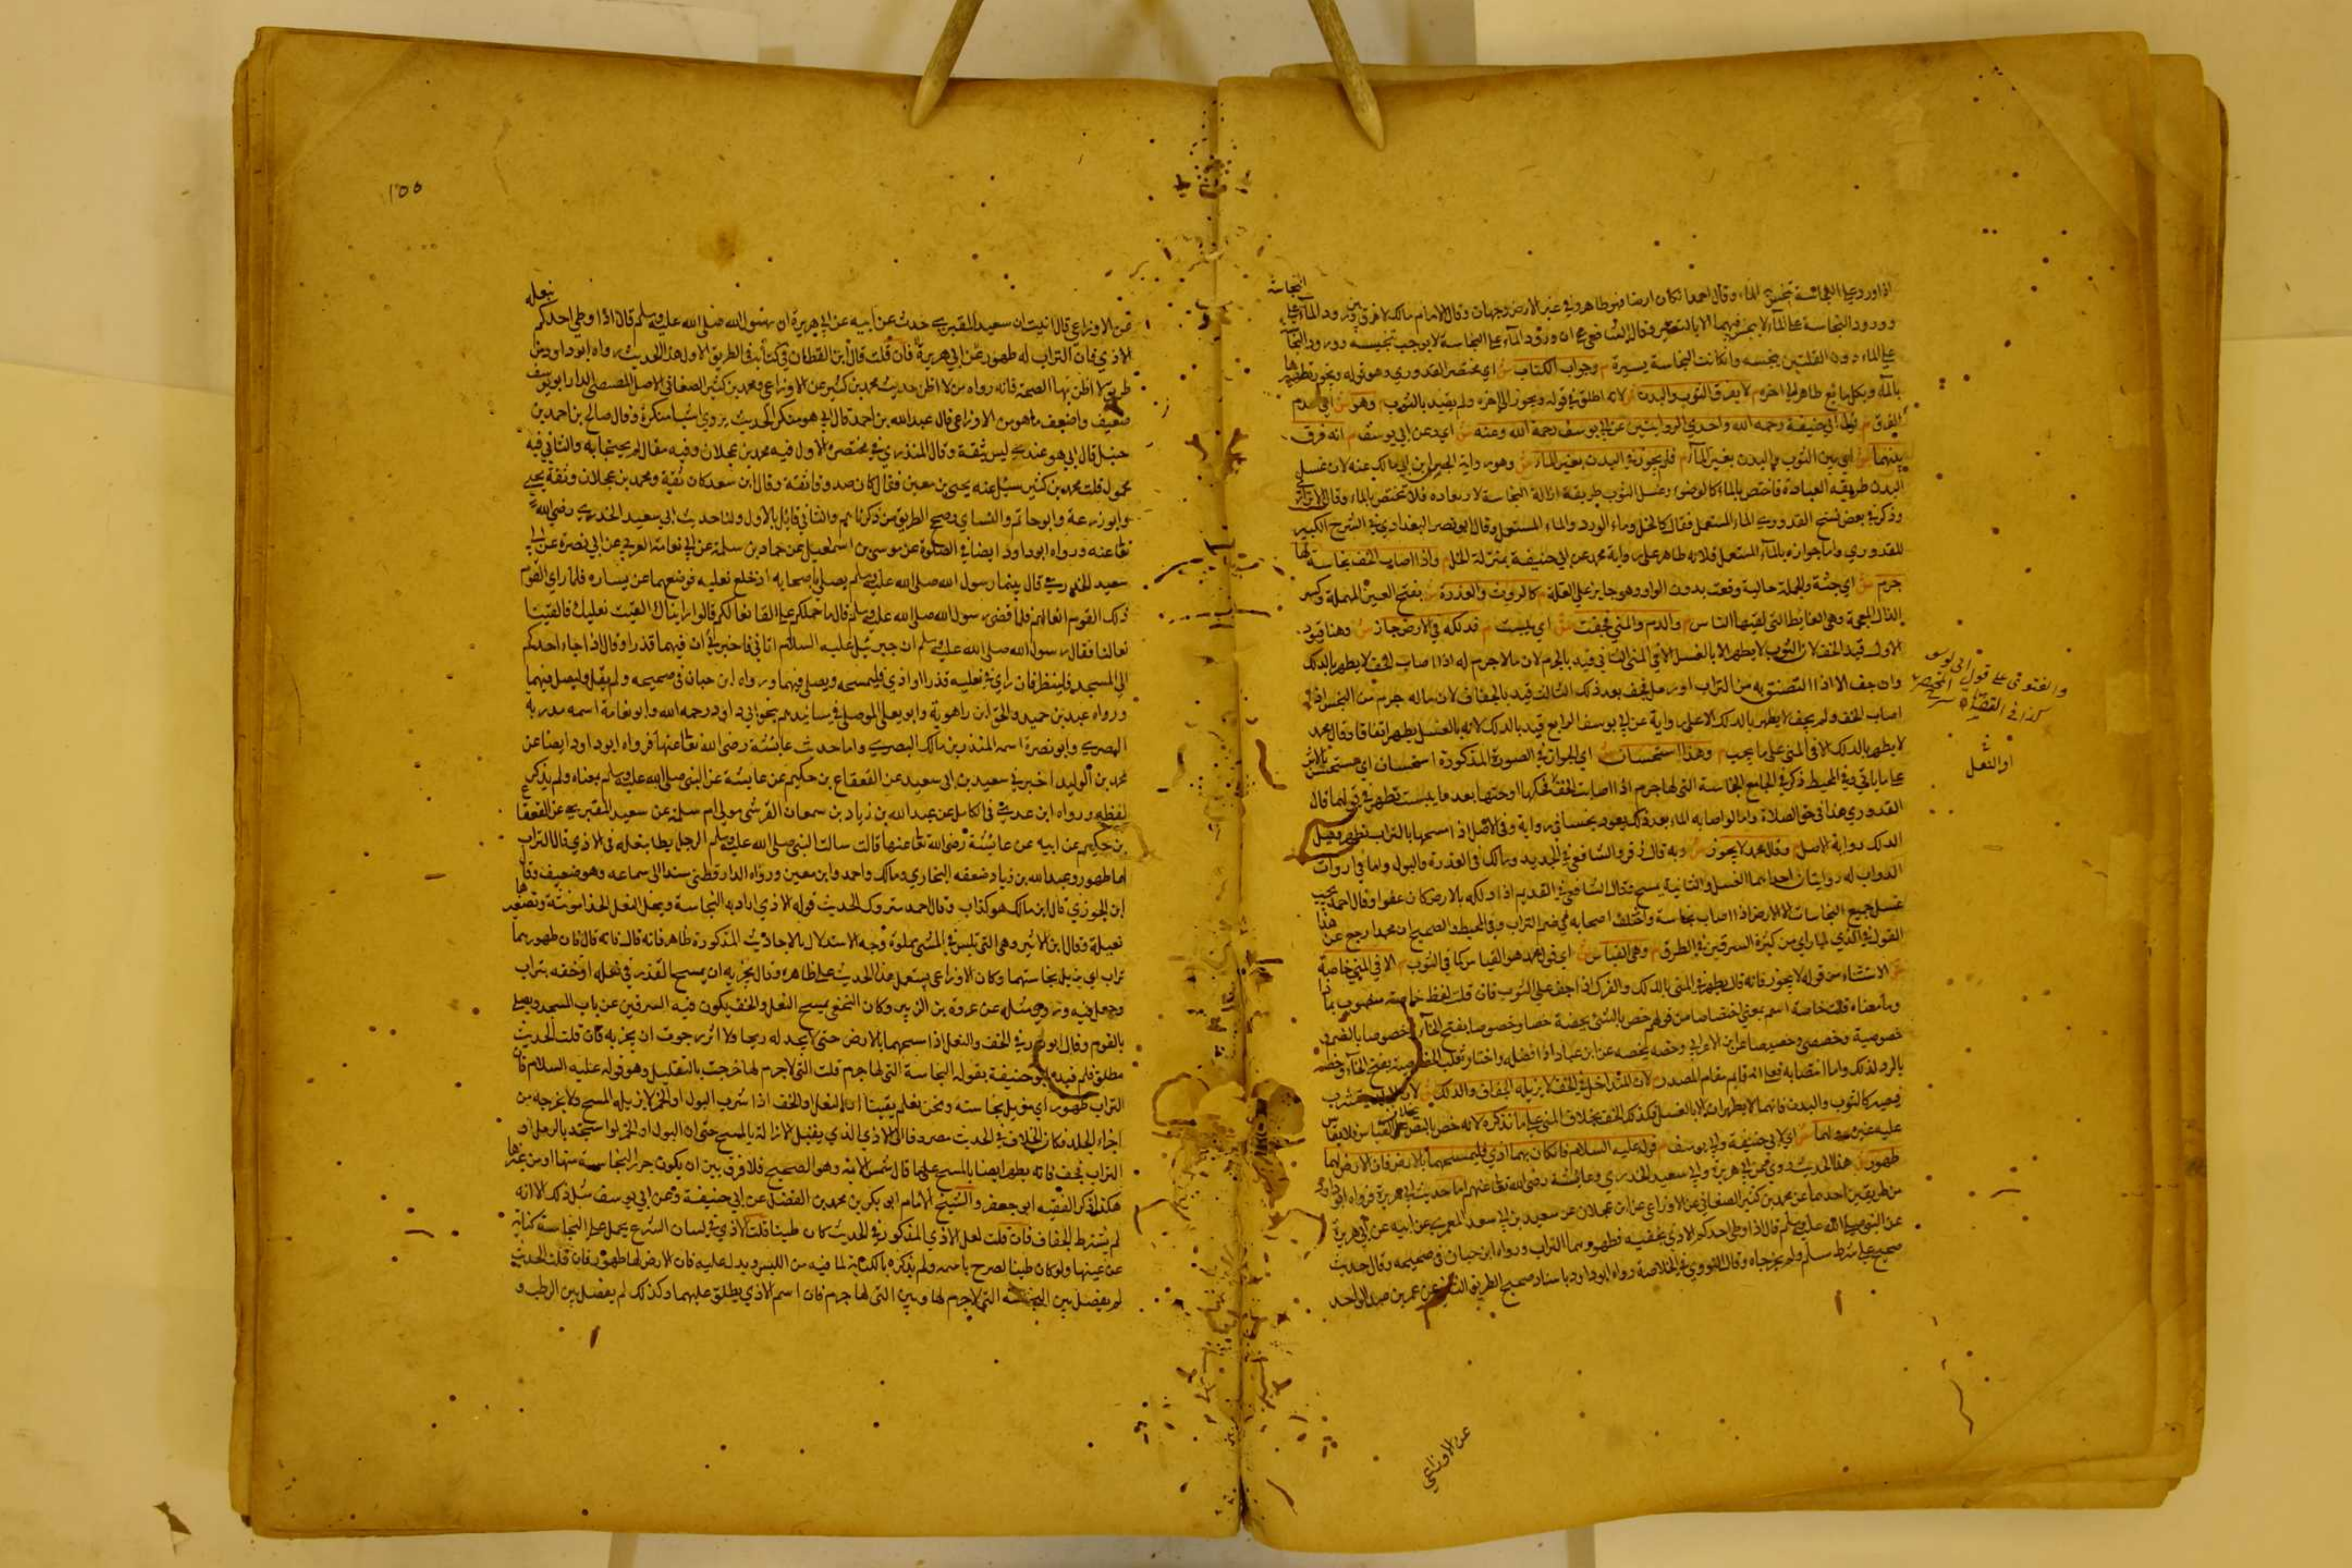 اذا ورد على النجاسة تنجس الماء وقال احمد ان كان ارضا فهو طاهر وفي غير الارض وجهان وقال الامام مالك لا فرق بين ورود الماء على النجاسة
وورود النجاسة على الماء لا ينجس فيهما الا بالتغير وقال الشافعي ان ورود الماء على النجاسة لا يوجب تنجيسه وورود النجاسة
على الماء دون القلتين ينجسه وان كانت النجاسة يسيرة م وجواب الكتاب ش اي مختصر القدوري وهو قوله ويجوز تطهيرها
بالماء وبكل مائع طاهر الى اخره م لا يفرق الثوب والبدن ش لانه اطلق في قوله ويجوز الى اخره ولم يقيد بالثوب م وهو ش اي عدم
الفرق م قول ابي حنيفة رحمه الله واحدي الروايتين عن ابي يوسف رحمة الله وعنه ش اي وعن ابي يوسف م انه فرق
بينهما ش اي بين الثوب والبدن بغير الماء م فلم يجوز في البدن بغير الماء ش وهو رواية الحسن بن ابي مالك عنه لان غسل
البدن طريقه العبادة فاختص بالماء كالوضوء وغسل الثوب طريقه ازالة النجاسة لا بعبادة فلا تختص بالماء وقال
وذكر في بعض نسخ القدوري الماء المستعمل فقال كالخل وماء الورد والماء المستعمل وقال ابو نصر البغدادي في الشرح الكبير
للقدوري واما جوازه بالماء المستعمل فلانه طاهر على رواية محمد عن ابي حنيفة بمنزلة الخل م واذا اصاب الخف نجاسة لها
جرم ش اي جثة والجملة حالية وقعت بدون الواو وهو جايز على القلة م كالروث والعذرة ش بفتح العين المهملة وكسر
الذال المعجمة وهي الغايط التي لقيها الناس م والدم والمني فجفت ش اي يبست م فدلكه في الارض جاز ش وهنا قيود
الاول قيد الخف لان الثوب لا يطهر الا بالغسل الا في المني الثاني قيد بالجرم لان ما لا جرم له اذا اصاب الخف لا يطهر بالدلك
وان جف الا اذا التصق به من التراب او رمل فجف بعد ذلك الثالث قيد بالجفاف لان ما له جرم من النجس اذا
اصاب الخف ولم يجف لا يطهر بالدلك الا على رواية عن ابي يوسف الرابع قيد بالدلك لانه بالغسل يطهر اتفاقا وقال محمد
لا يطهر بالدلك الا في المني على ما يجيء م وهذا استحسان ش اي الجواز في الصورة المذكورة استحسان اي مستحسن بالاثر
على ما ياتي وفي المحيط ذكر في الجامع النجاسة التي لها جرم اذا اصابت الخف فحكها او حتها بعد ما يبست تطهر في قولهما قال
القدوري هذا في حق الصلاة واما لو اصابه الماء بعد ذلك يعود نجسا في رواية وفي الاصل اذا مسحهما بالتراب تطهر
الدلك رواية الاصل م وقال محمد لا يجوز ش وبه قال زفر والشافعي في الجديد ومالك في العذرة والبول واما في ارواث
الدواب له روايتان احداهما الغسل والثانية يمسح وقال الشافعي في القديم اذا دلكه بالارض كان عفوا وقال احمد يجب
غسل جميع النجاسات الا الارض اذا اصاب نجاسة واختلف اصحابه في ضم التراب وفي المحيط والصحيح ان محمدا رجع عن هذا
القول في الذي لما راي من كثرة السرقين في الطرق م وهو القياس ش اي قول محمد هو القياس كما في الثوب م الا في المني خاصة
ش الاستثناء من قوله لا يجوز فانه قال يطهر في المني بالدلك والفرك اذا جف على الثوب فان قلت لفظ خاصة منصوب بماذا
وما معناه قلت خاصة اسم بمعنى اختصاصا من قولهم خص بالشيء يخصه خصا وخصوصا بفتح الخاء وخصوصا بالضم
خصوصية وخصصي وخصيصا عن ابن الاعرابي وخصه يخصه عن ابن عباد اذا فضله واختار ثعلب الخصوصية بفتح الخاء وخصه
بالود لذلك واما انتصابه فعلى انه قايم مقام المصدر م لان المتداخل في الخف لا يزيله الجفاف والدلك ش
فيصير كالثوب والبدن فانهما لا يطهران الا بالغسل فكذلك الخف بخلاف المني على ما نذكره لانه خص بالنص بخلاف القياس فلا يقاس
عليه غيره م ولهما ش اي لابي حنيفة ولابي يوسف م قوله عليه السلام فان كان بهما اذي فليمسحهما بالارض فان الارض لهما
طهور ش هذا الحديث روي عن ابي هريرة وابي سعيد الخدري وعائشة رضي الله تعالى عنهم اما حديث ابي هريرة فرواه ابو داود
من طريقين احدهما عن محمد بن كثير الصنعاني عن الاوزاعي عن ابن عجلان عن سعيد بن ابي سعيد المقبري عن ابيه عن ابي هريرة
عن النبي صلى الله عليه وسلم قال اذا وطى احدكم الاذي بخفيه فطهورهما التراب ورواه ابن حبان في صحيحه وقال حديث
صحيح على شرط مسلم ولم يخرجاه وقال النووي في الخلاصة رواه ابو داود باسناد صحيح الطريق الثاني عن عمر بن عبد الواحد
عن الاوزاعي
والفتوى على قول ابي يوسف
او النعل
١٥٥
عن الاوزاعي قال انبئت ان سعيد المقبري حدث عن ابيه عن ابي هريرة ان رسول الله صلى الله عليه وسلم قال اذا وطى احدكم بنعله
الاذي فان التراب له طهور عن ابي هريرة فان قلت قال ابن القطان في كتابه في الطريق الاول هذا الحديث رواه ابو داود من
طريق لا اظن بها الصحة فانه رواه من لا اظن حديث محمد بن كثير عن الاوزاعي ومحمد بن كثير الصنعاني الاصل المصيصي الدار ابو يوسف
ضعيف واضعف ما هو من الاوزاعي قال عبد الله بن احمد قال ابي هو منكر الحديث يروي اشيا منكرة وقال صالح بن احمد بن
حنبل قال ابي هو عندي ليس بثقة وقال المنذري في مختصره الاول فيه محمد بن عجلان وفيه مقال لم يحتجا به والثاني فيه
مجهول قلت محمد بن كثير سئل عنه يحيى بن معين فقال كان صدوقا ثقة وقال ابن سعد كان ثقة ومحمد بن عجلان وثقه يحيى
وابو زرعة وابو حاتم والنسائي وصحح الطريق من ذكرناهم والثاني قائل بالاول ولنا حديث ابي سعيد الخدري رضي الله
تعالى عنه ورواه ابو داود ايضا في الصلوة عن موسى بن اسمعيل عن حماد بن سلمة عن ابي نعامة العربي عن ابي نضرة عن ابي
سعيد الخدري قال بينما رسول الله صلى الله عليه وسلم يصلي باصحابه اذ خلع نعليه فوضعهما عن يساره فلما راي القوم
ذلك القوم القوا نعالهم فلما قضى رسول الله صلى الله عليه وسلم قال ما حملكم على القا نعالكم قالوا رايناك القيت نعليك فالقينا
نعالنا فقال رسول الله صلى الله عليه وسلم ان جبرئيل عليه السلام اتاني فاخبرني ان فيهما قذرا وقال اذا جاء احدكم
الى المسجد فلينظر فان راي في نعليه قذرا او اذي فليمسحه ويصلي فيهما ورواه ابن حبان في صحيحه ولم يقل وليصل فيهما
ورواه عبد بن حميد واسحق ابن راهوية وابو يعلى الموصلي في مسانيدهم بنحو ابي داود رحمه الله وابو نعامة اسمه عبد ربه
البصري وابو نضرة اسمه المنذر بن مالك البصري واما حديث عائشة رضي الله تعالى عنها فرواه ابو داود ايضا عن
محمد بن الوليد اخبرني سعيد بن ابي سعيد عن القعقاع بن حكيم عن عايشة عن النبي صلى الله عليه وسلم بمعناه ولم يذكر
لفظه ورواه ابن عدي في الكامل عن عبد الله بن زياد بن سمعان القرشي مولى ام سلمة عن سعيد المقبري عن القعقاع
بن حكيم عن ابيه عن عائشة رضي الله تعالى عنها قالت سالت النبي صلى الله عليه وسلم الرجل يطا بنعله في الاذي قال التراب
لهما طهور وعبد الله بن زياد ضعفه البخاري ومالك واحمد وابن معين ورواه الدارقطني مسندا الى سماعه وهو ضعيف وقال
ابن الجوزي قال ابن مالك هو كذاب وقال احمد متروك الحديث قوله الاذي اراد به النجاسة وبنعل النعل الحذا مونثة وتصغيرها
نعيلة وقال ابن الاثير وهي التي تلبس في المشي بملوة وجه الاستدلال بالاحاديث المذكورة ظاهر فانه قال فانه قال فان طهورهما
تراب اي يزيل نجاستهما وكان الاوزاعي يستعمل هذا الحديث على ظاهره وقال يجزيه ان يمسح القذر في نعله او خفه بتراب
وجعل فيه وروي مثله عن عروة بن الزبير وكان النخعي يمسح النعل والخف يكون فيه السرقين عن باب المسجد ويصلي
بالقوم وقال ابو ثور في الخف والنعل اذا مسحهما بالارض حتى لا يجد له ريحا ولا اثر رجوت ان يجزيه فان قلت الحديث
مطلق فلم قيده ابو حنيفة بقوله النجاسة التي لها جرم قلت التي لا جرم لها خرجت بالتعليل وهو قوله عليه السلام فان
التراب طهور اي مزيل نجاسته ونحن نعلم يقينا ان النعل والخف اذا شرب البول او الخمر لا يزيله المسح ولا يخرجه من
اجزاء الجلد فكان الخلاف في الحديث مصروفا الى الاذي الذي يقبل الازالة بالمسح حتى ان البول او الخمر لو استجسد بالرمل او
التراب فجف فانه يطهر ايضا بالمسح على ما قال شمس الائمة وهو الصحيح فلا فرق بين ان يكون جرم النجاسة منها او من غيرها
هكذا ذكر الفقيه ابو جعفر والشيخ الامام ابو بكر بن محمد بن الفضل عن ابي حنيفة وعن ابي يوسف مثل ذلك الا انه
لم يشترط الجفاف فان قلت لعل الاذي المذكور في الحديث كان طينا قلت الاذي في لسان الشرع يحمل على النجاسة كناية
عن عينها ولو كان طينا لصرح باسمه ولم يذكره بالكناية لما فيه من اللبس ويدل عليه فان الارض لها طهور فان قلت الحديث
لم يفصل بين النجاسة التي لا جرم لها وبين التي لها جرم فان اسم الاذي يطلق عليهما وكذلك لم يفصل بين الرطب و